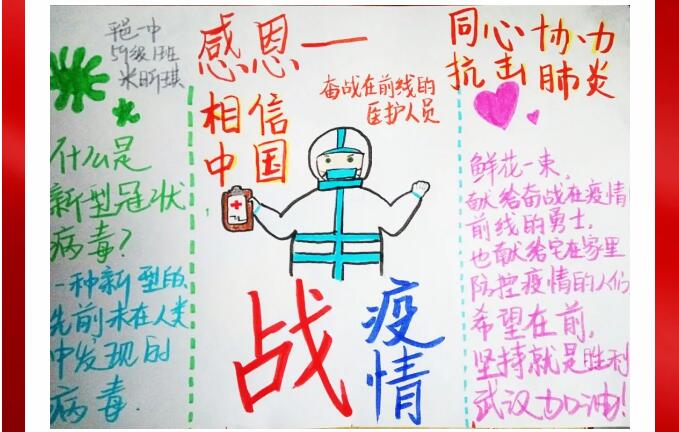 平邑一中
59级1班
米昕琪
什么是
新型冠状
病毒?
一种新型的
先前未在人类
中发现的
病毒
感恩一
相信
中国
奋战在前线的
医护人员
战
疫
情
同心协力
抗击肺炎
鲜花一束,
献给奋战在疫情
前线的勇士.
也献给宅在家里
防控疫情的人们
希望在前,
坚持就是胜利
武汉加油!